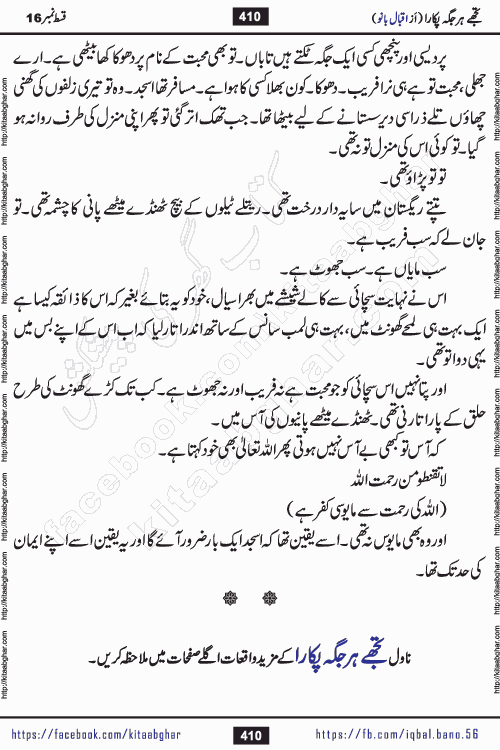 تجھے ہر جگہ پکارا (از اقبال بانو)
410
قسط نمبر 16
پردیسی اور پنچھی کسی ایک جگہ ٹکتے ہیں تاباں۔ تو بھی محبت کے نام پر دھوکا کھا بیٹھی ہے۔ ارے
جھلی، محبت تو ہے ہی نرا فریب۔ دھوکا۔ کون بھلا کسی کا ہوا ہے۔ مسافر تھا اسجد۔ وہ تو تیری زلفوں کی گھنی
چھاؤں تلے ذرا سی دیر ستانے کے لیے بیٹھا تھا۔ جب تھک اتر گئی تو پھر اپنی منزل کی طرف روانہ ہو
گیا۔ تو کوئی اس کی منزل تو نہ تھی۔
تو تو پڑاؤ تھی۔
تپتے ریگستان میں سایہ دار درخت تھی۔ ریتلے ٹیلوں کے بیچ ٹھنڈے میٹھے پانی کا چشمہ تھی۔ تو
جان لے کہ سب فریب ہے۔
سب مایاں ہے۔ سب جھوٹ ہے۔
اس نے نہایت سچائی سے کالے شیشے میں بھرا سیال، خود کو یہ بتائے بغیر کہ اس کا ذائقہ کیسا ہے
ایک بہت ہی لمبے گھونٹ میں، بہت ہی لمب سانس کے ساتھ اندر اتار لیا کہ اب اس کے اپنے بس میں
یہی دوا تو تھی۔
اور پتا نہیں اس سچائی کو جو محبت ہے نہ فریب اور نہ جھوٹ ہے۔ کب تک کڑے گھونٹ کی طرح
حلق کے پار اتارنی تھی۔ ٹھنڈے میٹھے پانیوں کی آس میں۔
کہ آس تو کبھی بے آس نہیں ہوتی پھر اللہ تعالیٰ بھی خود کہتا ہے۔
لا تقنطو من رحمت اللہ
(اللہ کی رحمت سے مایوسی کفر ہے)
اور وہ بھی مایوس نہ تھی۔ اسے یقین تھا کہ اسجد ایک بار ضرور آئے گا اور یہ یقین اسے اپنے ایمان
کی حد تک تھا۔
ناول تجھے ہر جگہ پکارا کے مزید واقعات اگلے صفحات میں ملاحظہ کریں۔
https://facebook.com/kitaabghar
410
https://fb.com/iqbal.bano.56
http://kitaabghar.com http://kitaabghar.com http://kitaabghar.com http://kitaabghar.com http://kitaabghar.com http://kitaabghar.com http://kitaabghar.com http://kitaabghar.com
http://kitaabghar.com http://kitaabghar.com http://kitaabghar.com http://kitaabghar.com http://kitaabghar.com http://kitaabghar.com http://kitaabghar.com http://kitaabghar.com
کتاب گھر کی پیشکش
facebook.com/kitaabghar
kitaabghar.com